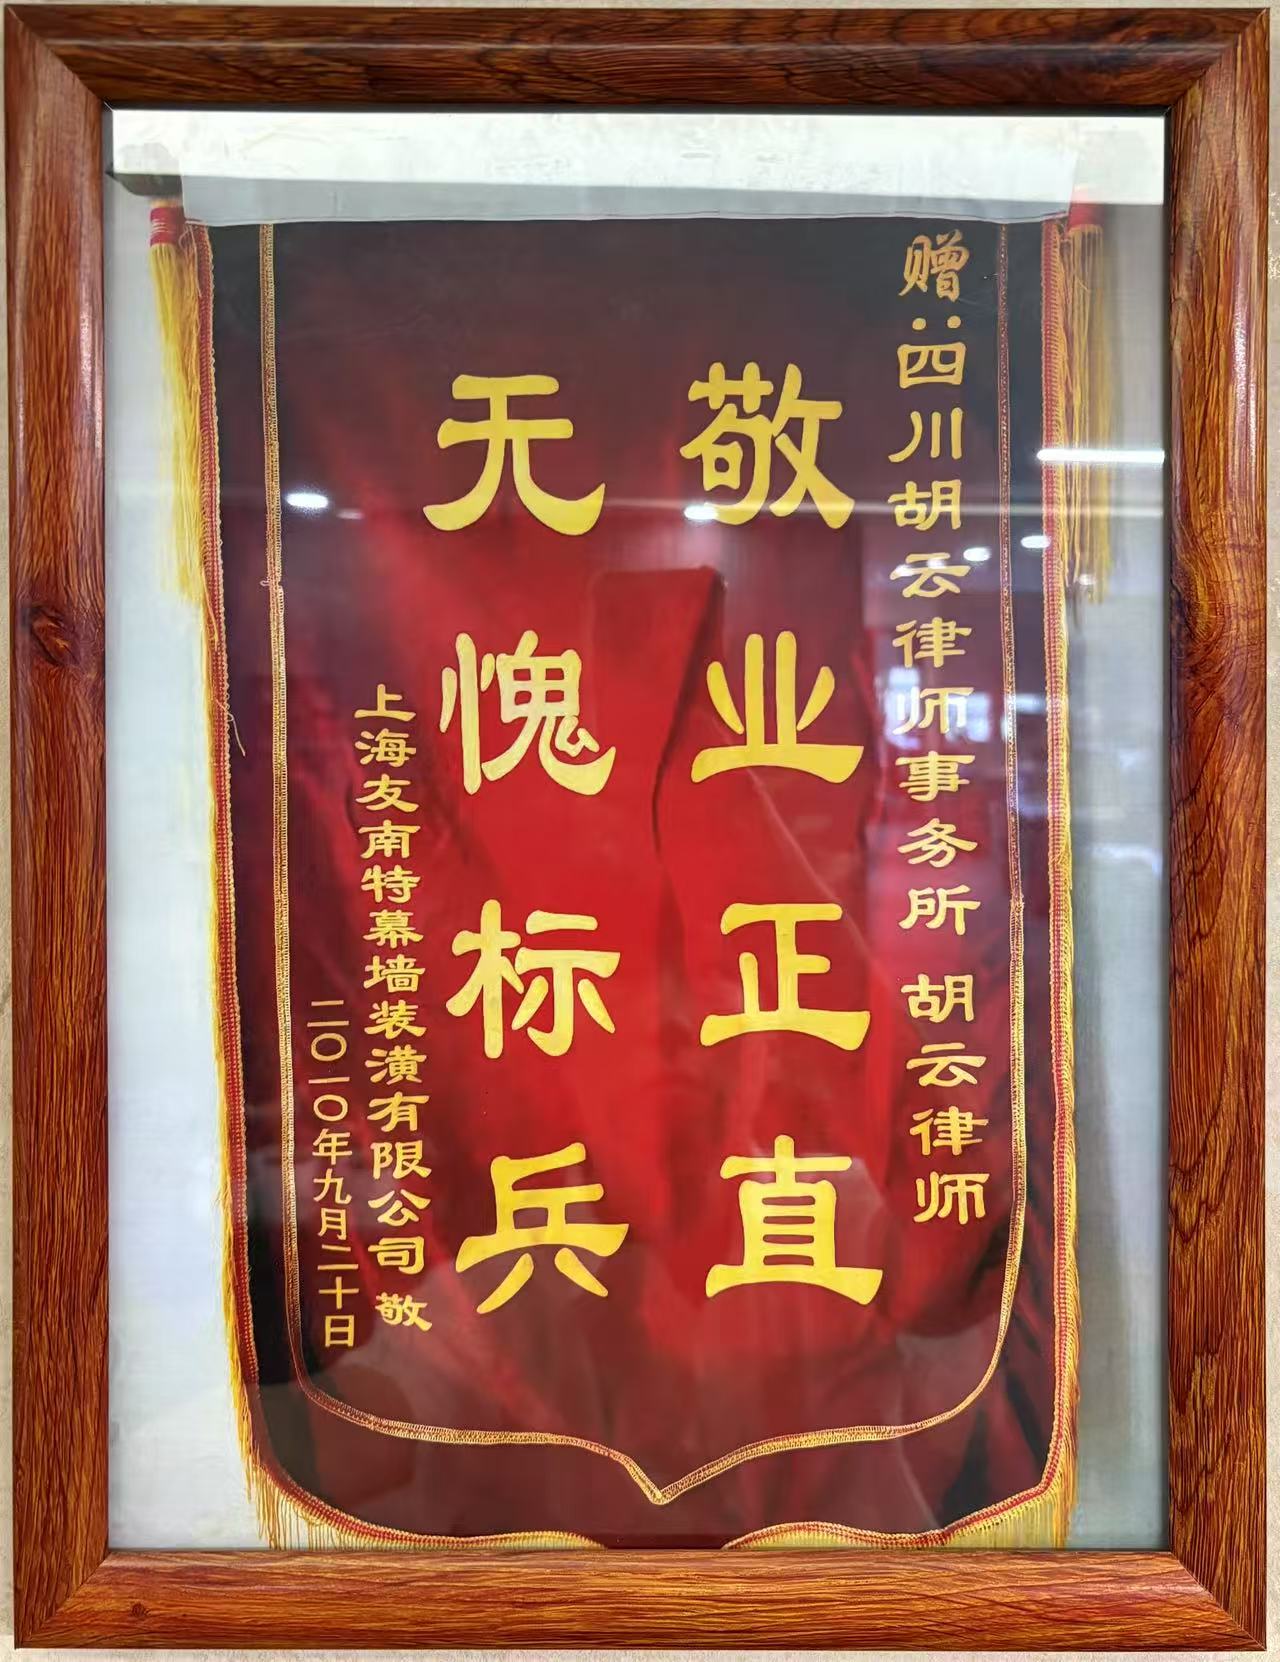 赠：四川胡云律师事务所 胡云律师
敬业正直
无愧标兵
上海友南特幕墙装潢有限公司 敬
二〇一〇年九月二十日